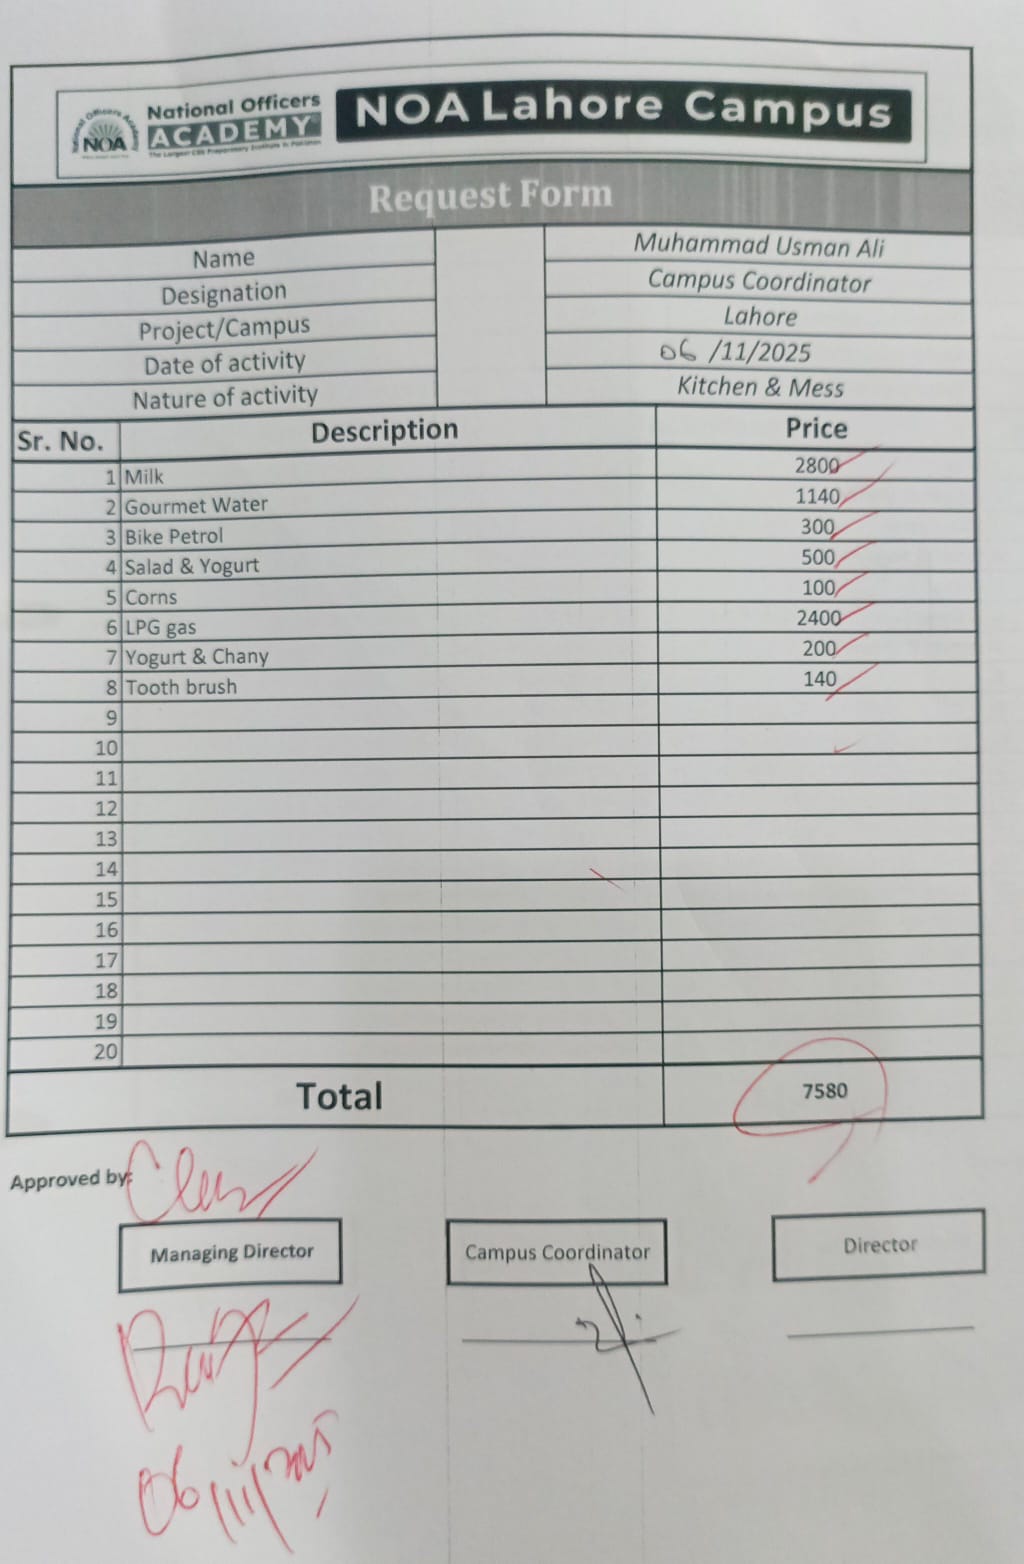 National Officers Academy
NOA
National Officers
ACADEMY
The Largest CSS Preparatory Institute in Pakistan
NOA Lahore Campus
Request Form
Name Muhammad Usman Ali
Designation Campus Coordinator
Project/Campus Lahore
Date of activity 06 /11/2025
Nature of activity Kitchen & Mess
Sr. No. Description Price
1 Milk 2800
2 Gourmet Water 1140
3 Bike Petrol 300
4 Salad & Yogurt 500
5 Corns 100
6 LPG gas 2400
7 Yogurt & Chany 200
8 Tooth brush 140
9
10
11
12
13
14
15
16
17
18
19
20
Total 7580
Approved by:
Managing Director Campus Coordinator Director
06/11/2025